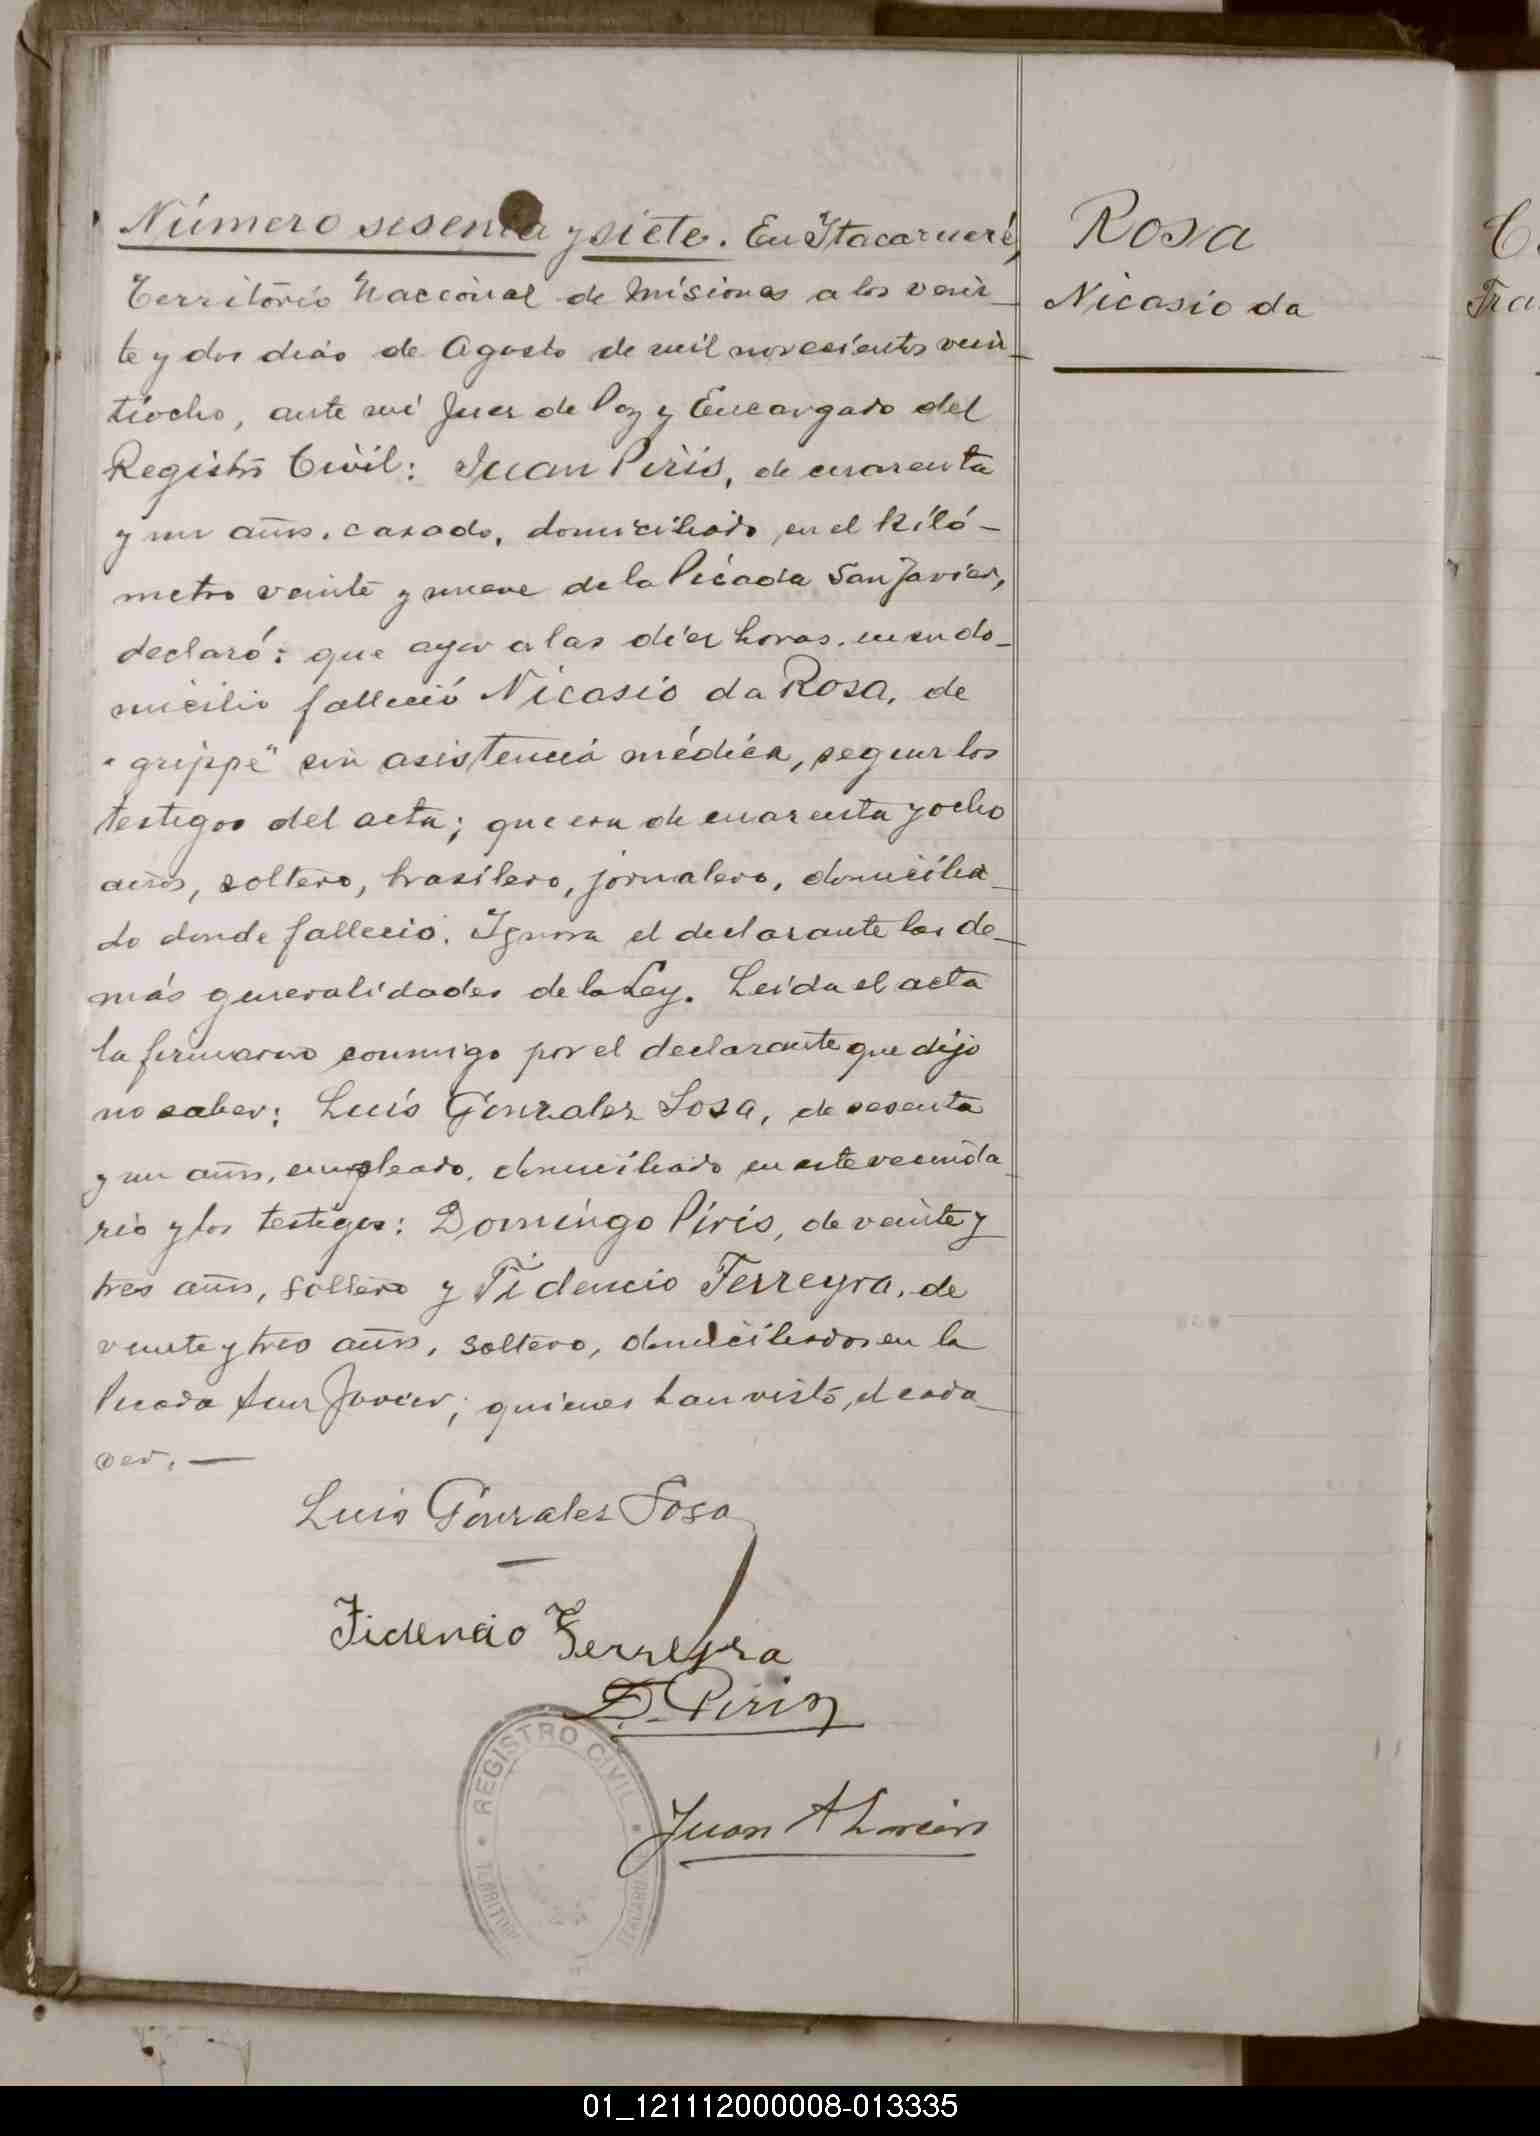 Número sesenta y siete. En Itacaruaré,
Territorio Nacional de Misiones a los vein-
te y dos dias de Agosto de mil novecientos vein-
tiocho, ante mi Juez de Paz y Encargado del
Registro Civil: Juan Piris, de cuarenta
y un años, casado, domiciliado en el kiló-
metro veinte y nueve de la Picada San Javier,
declaró: que ayer a las diez horas, en su do-
micilio falleció Nicasio da Rosa, de
"grippe" sin asistencia médica, segun los
testigos del acta; que era de cuarenta y ocho
años, soltero, brasilero, jornalero, domicilia-
do donde falleció. Ignora el declarante las de-
más generalidades de la Ley. Leida el acta
la firmaron conmigo por el declarante que dijo
no saber: Luis Gonzalez Sosa, de sesenta
y un años, empleado, domiciliado en este vecinda-
rio y los testigos: Domingo Piris, de veinte y
tres años, soltero y Fidencio Ferreyra, de
veinte y tres años, soltero, domiciliados en la
Picada San Javier; quienes han visto el cada-
ver. —
Luis Gonzalez Sosa
Fidencio Ferreyra
D. Piris
Juan A
REGISTRO CIVIL
Rosa
Nicasio da
01_121112000008-013335